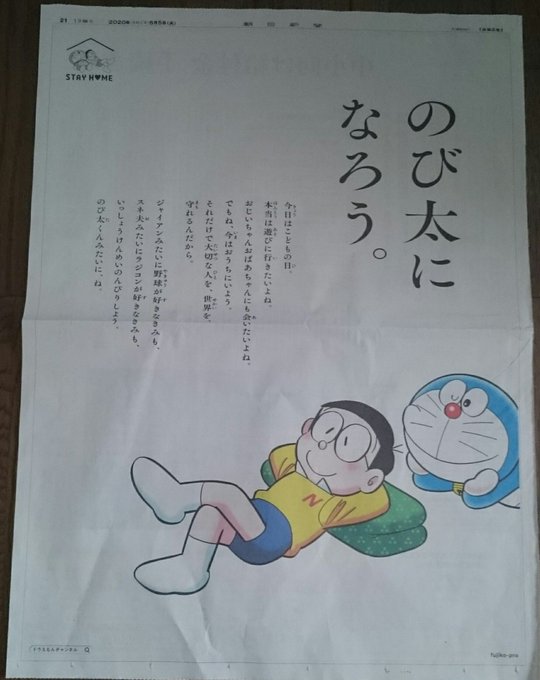 21
2020年
5月5日
朝日新聞
STAY HOME
のび太に
なろう。
今日はこどもの日。
本当は遊びに行きたいよね。
おじいちゃんおばあちゃんにも会いたいよね。
でもね、今はおうちにいよう。
それだけで大切な人を、世界を、
守れるんだから。
ジャイアンみたいに野球が好きなきみも、
スネ夫みたいにラジコンが好きなきみも、
いっしょうけんめいのんびりしよう。
のび太くんみたいに、ね。
N
ドラえもんチャンネル
fujiko-pro